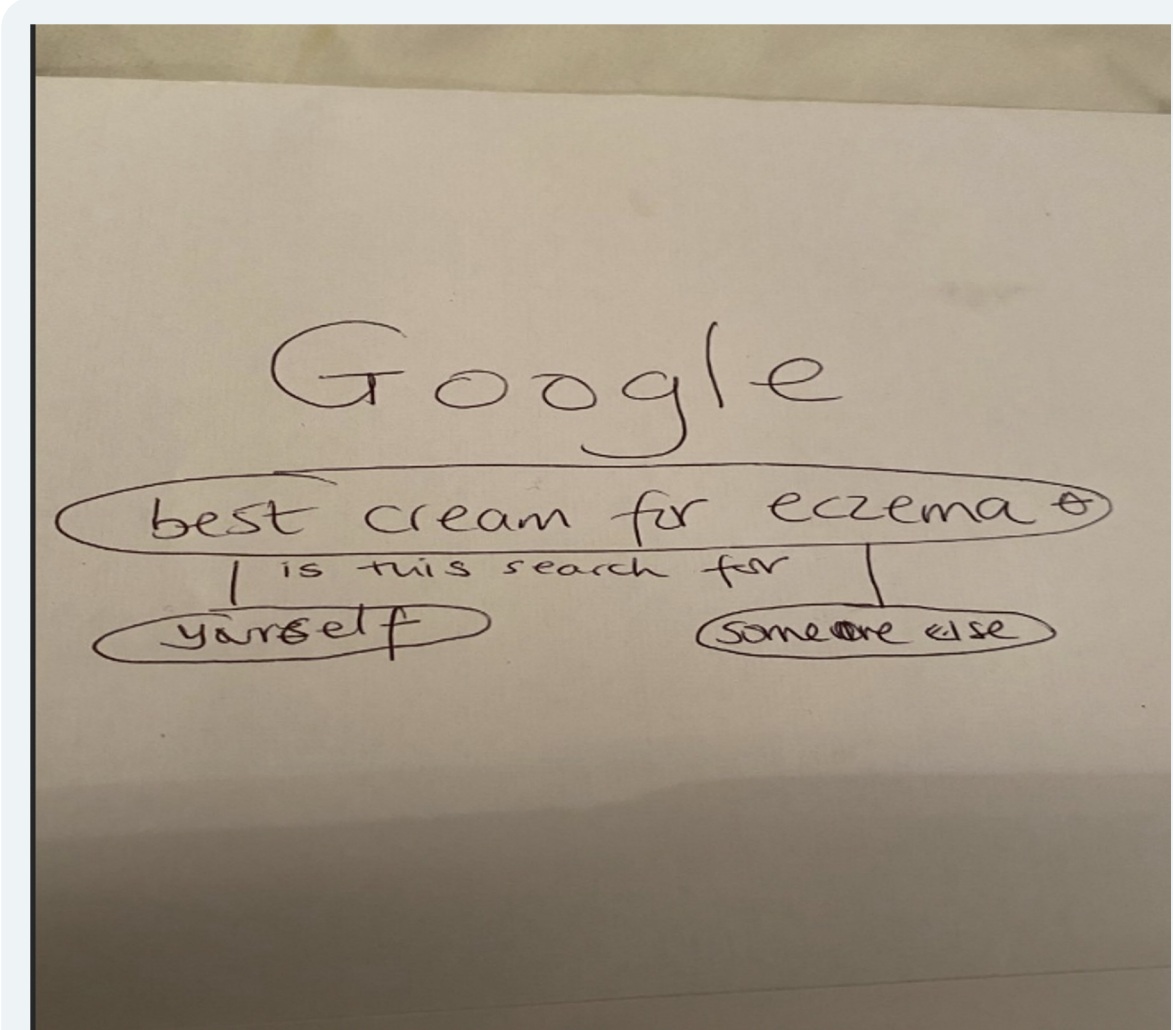 Google
best cream for eczema
is this search for
yourself
someone else